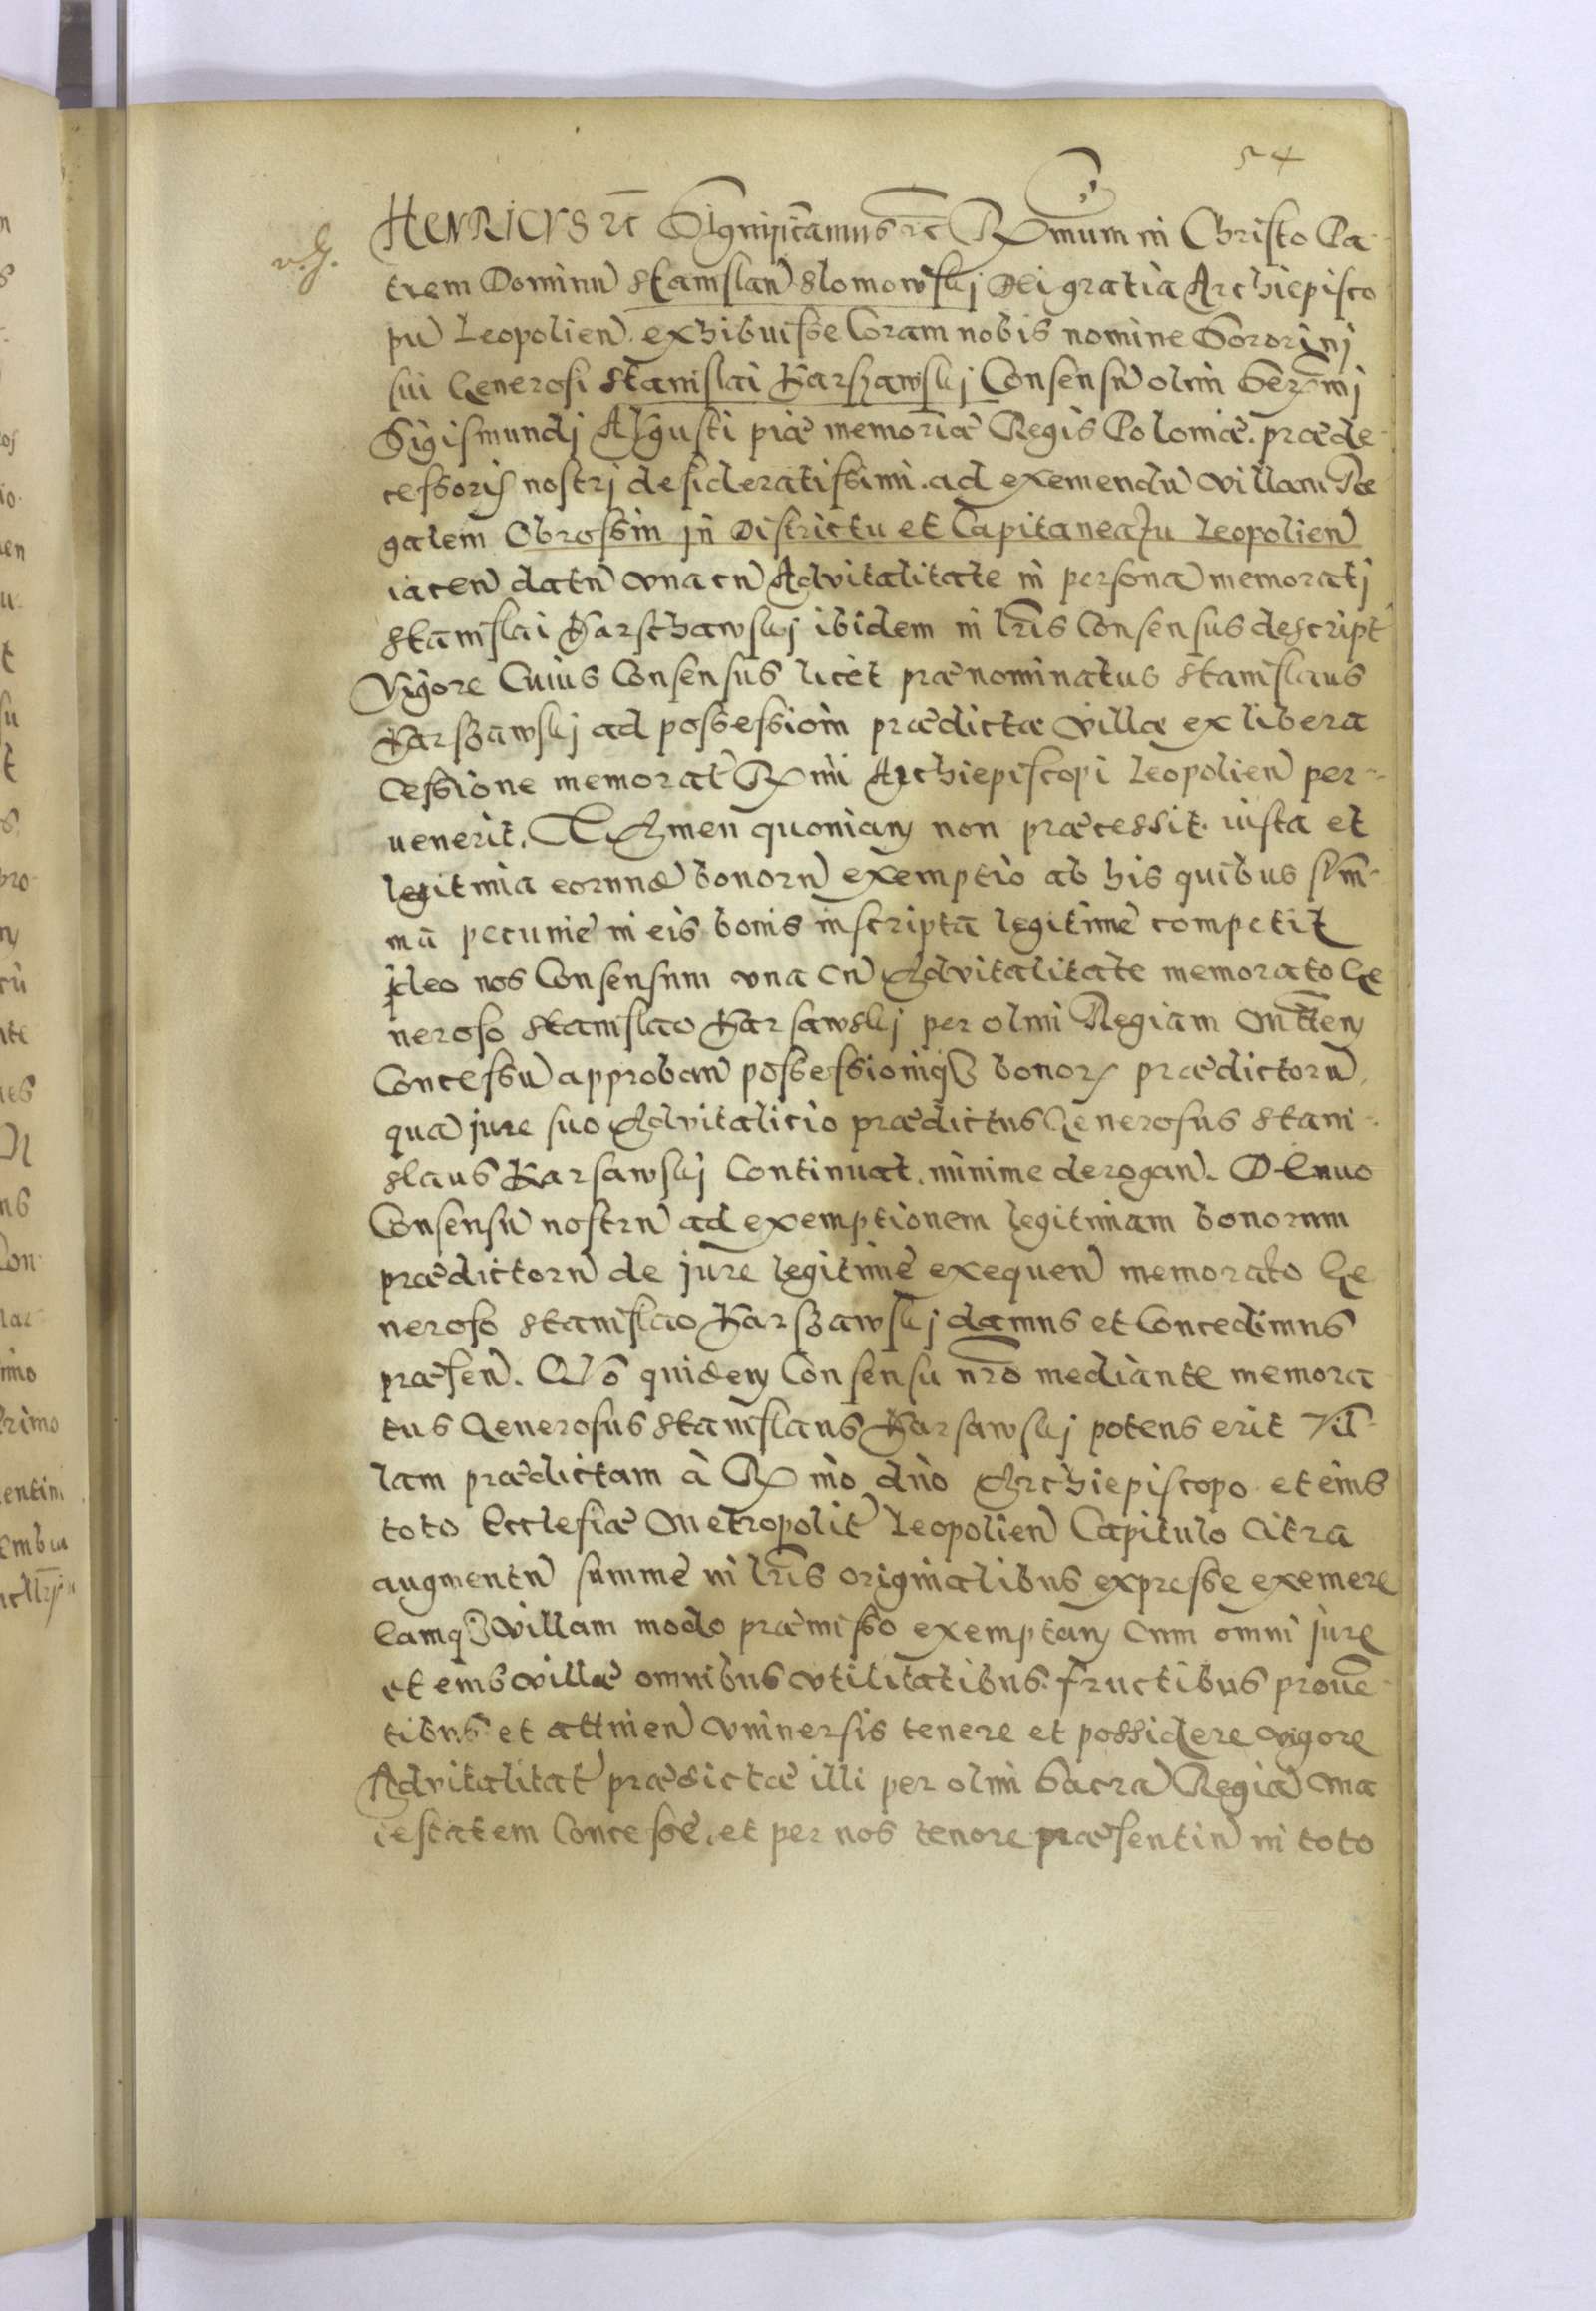 54
HENRICVS etc Significamus etc Rmum in Christo Pa-
trem Dominu Stanislau Slomowskj Dei gratia Archiepisco
pu Leopolien. exhibuisse Coram nobis nomine Sororinj
sui Generosi Stanislai Karszawskj Consensu olim Sermj
Sigismundj Augusti piæ memoriæ Regis Poloniæ. præde-
cessoris nostrj desideratissimi. ad exemendu villam Re
galem Obrossin jn Districtu et Capitaneatu Leopolien
iacen datu vna cu Advitalitate in persona memoratj
Stanislai Karschawskj ibidem in lris Consensus descript
Vigore Cuius Consensus licet prænominatus Stanislaus
Karszawskj ad possessioim prædictæ villæ ex libera
Cessione memorat Rmi Archiepiscopi Leopolien per-
uenerit. Attamen quoniam non præcessit. iusta et
legitima eorumde bonoru exemptio ab his quibus sum-
ma pecuniæ in eis bonis inscripta legitime competit
jdeo nos Consensum vna cu Advitalitate memorato Ge
neroso Stanislao Karsawskj per olim Regiam Mttem
Concessu approban possessioniq bonor prædictoru
qua jure suo Advitalicio prædictus Generosus Stani-
slaus Karsawskj Continuat. minime derogan. Denuo
Consensu nostru ad exemptionem legitimam bonorum
prædictoru de jure legitime exequen memorato Ge
neroso Stanislao Karszawskj damus et Concedimus
præsen. Quo quidem Consensu nro mediante memora
tus Generosus Stanislaus Karsawskj potens erit Vil-
lam prædictam à Rmo dno Archiepiscopo et eius
toto Ecclesiæ Metropolit Leopolien Capitulo Citra
augmentu summe in lris originalibus expresse exemere
Eamq villam modo præmisso exemptam Cum omni jure
et eius villæ omnibus vtilitatibus. fructibus proue-
tibus et attinen vniuersis tenere et possidere vigore
Advitalitat prædictæ illi per olim Sacra Regia Ma
iestatem Concessæ, et per nos tenore præsentiu in toto